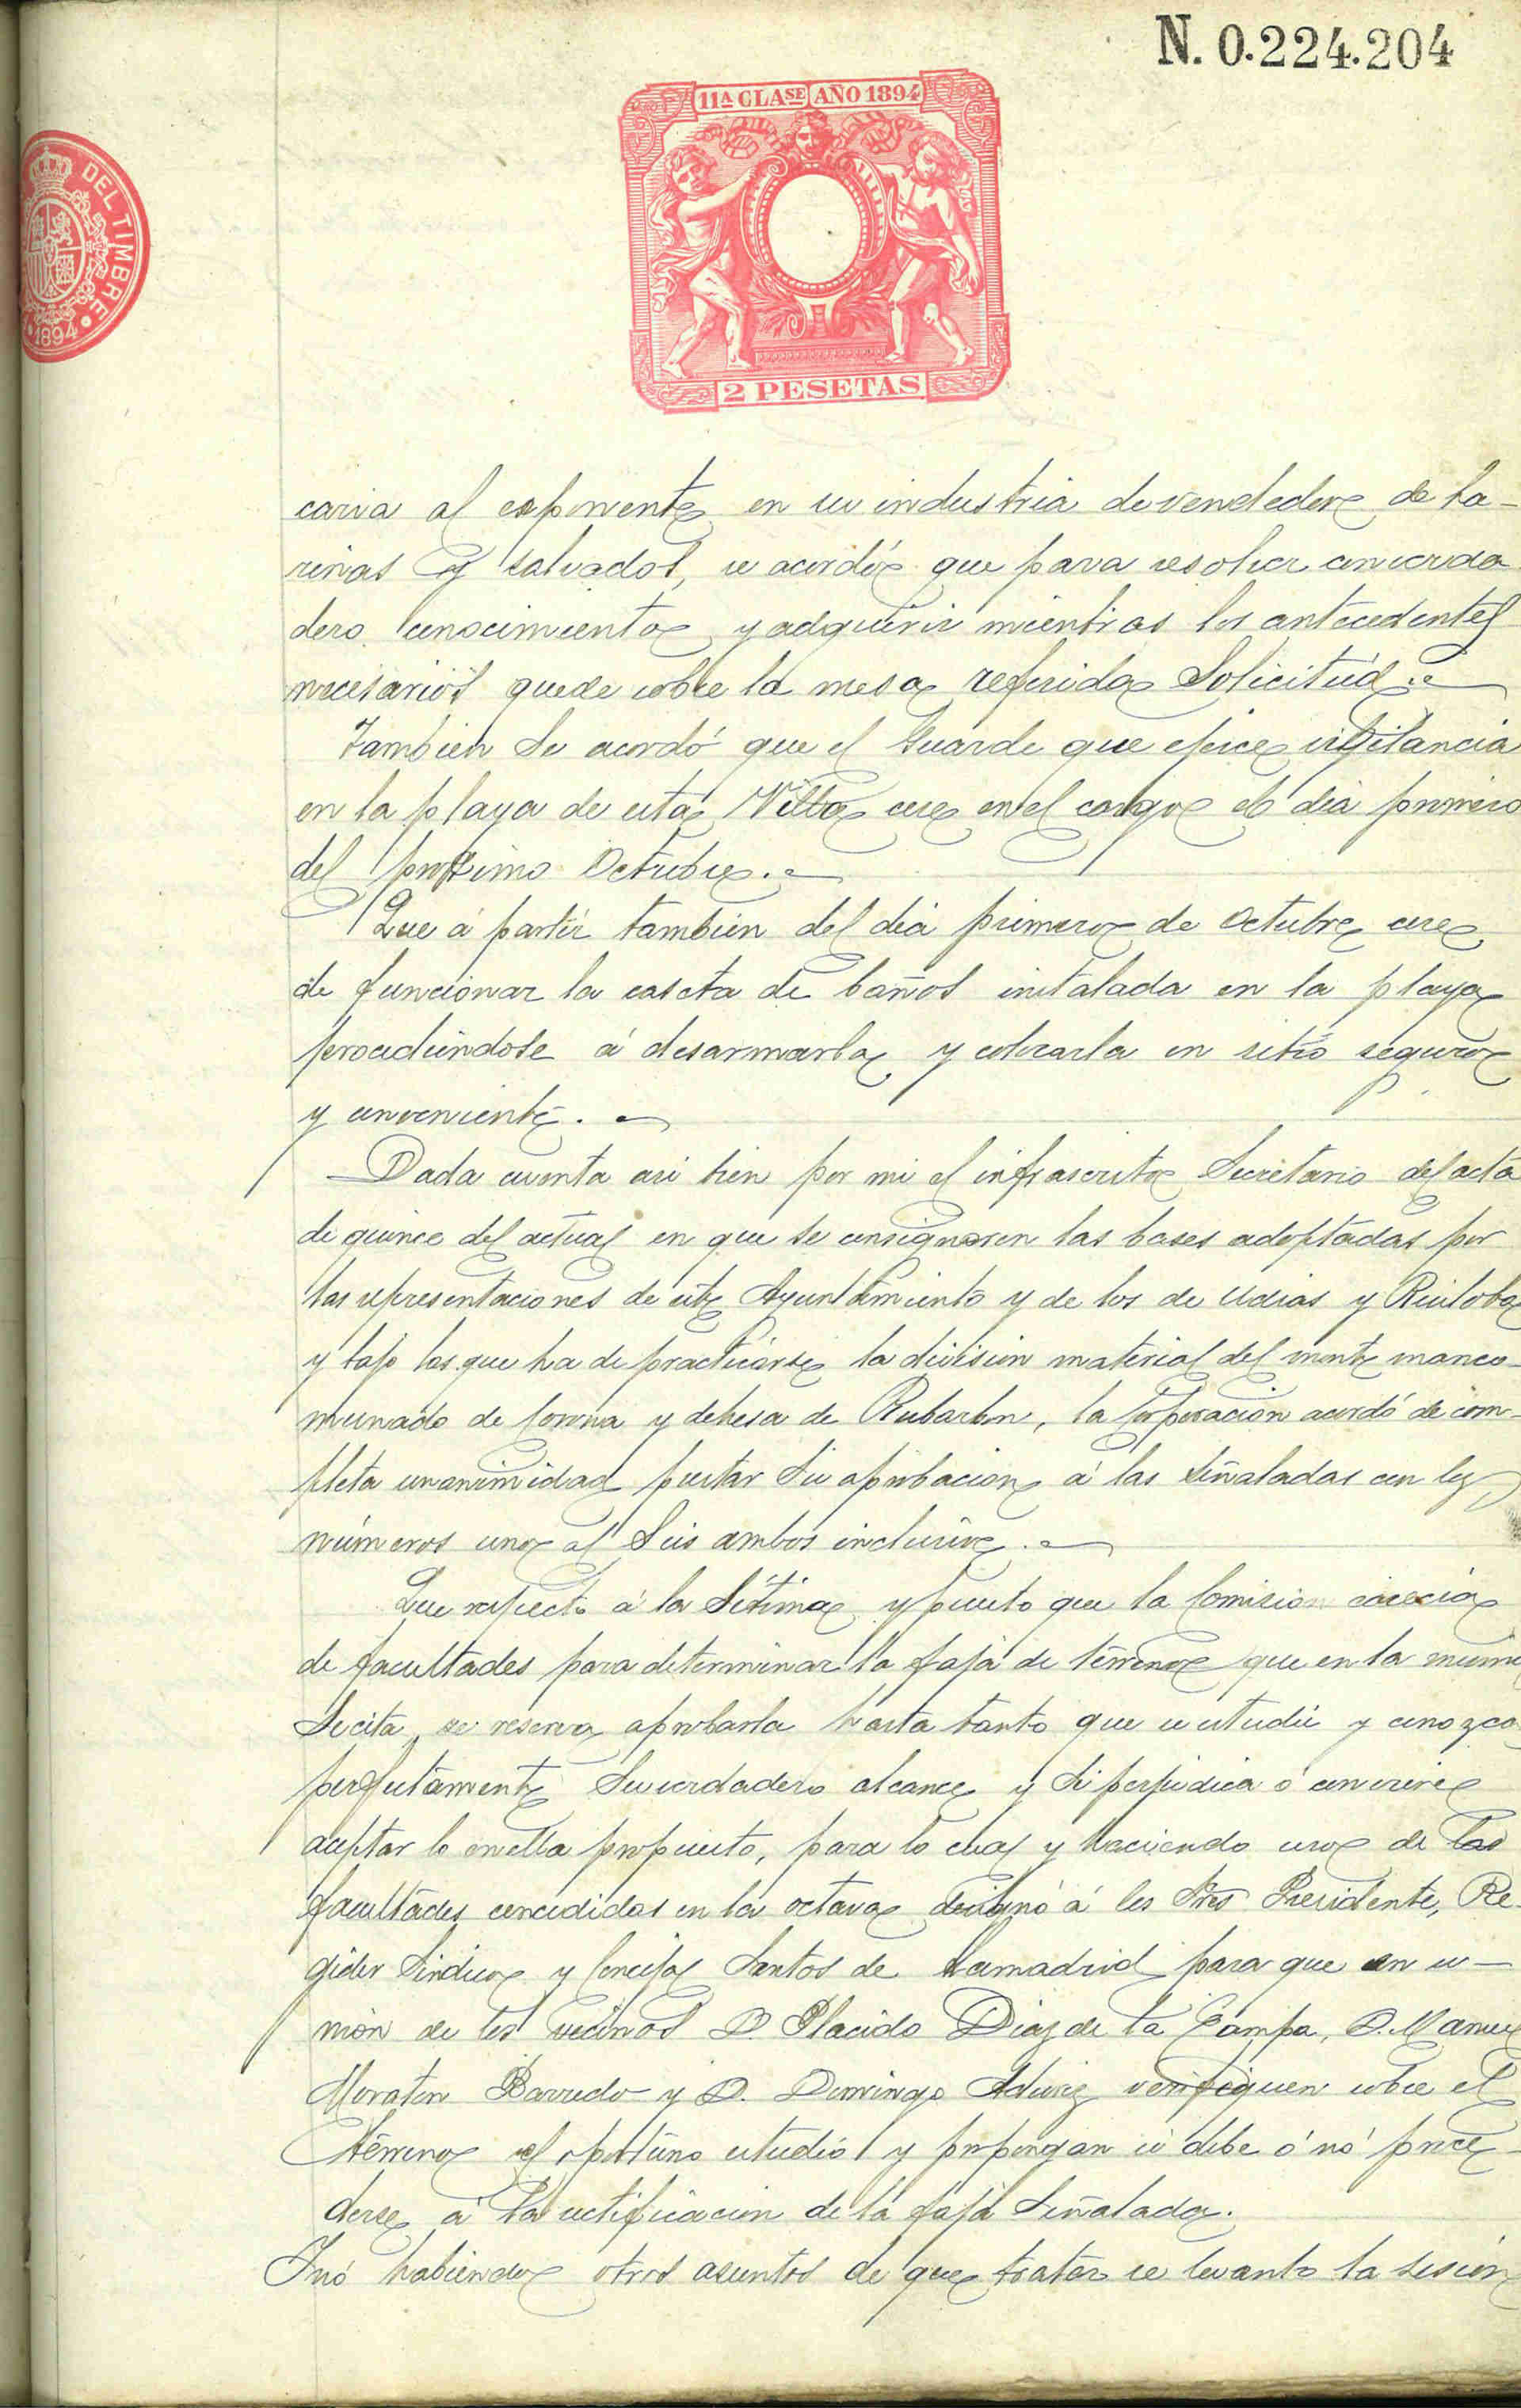 N. 0.224.204
11A CLASE AÑO 1894
DEL TIMBRE
1894
2 PESETAS
caria al exponente en su industria de vendedor de ha-
rinas y salvados, se acordó que para resolver con verda
dero conocimiento y adquirir mientras los antecedentes
necesarios quede sobre la mesa referida Solicitud.
Tambien se acordó que el Guarda que ejerce vigilancia
en la playa de esta Villa cese en el cargo el dia primero
del proximo Octubre.
Que á partir tambien del dia primero de Octubre cese
de funcionar la caseta de baños instalada en la playa
procediendose á desarmarla y colocarla en sitio seguro
y conveniente.
Dada cuenta asi bien por mi el infrascrito Secretario del acta
de quince del actual en que se consignaron las bases adoptadas por
las representaciones de este Ayuntamiento y de los de Udias y Ruiloba
y bajo las que ha de practicarse la division material del monte manco-
munado de Corona y dehesa de Rubarbon, la Corporacion acordó de com-
pleta unanimidad prestar su aprobacion á las señaladas con los
números uno al Seis ambos inclusive.
Que respecto á la Sétima y puesto que la Comision carecia
de facultades para determinar la faja de terreno que en la misma
se cita, se reserva aprobarla hasta tanto que se estudie y conozca
perfectamente su verdadero alcance y si perjudica ó conviene
aceptar lo en ella propuesto, para lo cual y haciendo uso de las
facultades concedidas en la octava designó á los Sres Presidente, Re-
gidor Sindico y Concejal Santos de Lamadrid para que en u-
nión de los vecinos D. Placido Diaz de la Campa, D. Manuel
Moraton Barredo y D. Domingo Aduriz verifiquen sobre el
terreno el oportuno estudio y propongan si debe ó nó proce-
derse á la rectificacion de la faja Señalada.
Y nó habiendo otros asuntos de que tratar se levantó la sesión